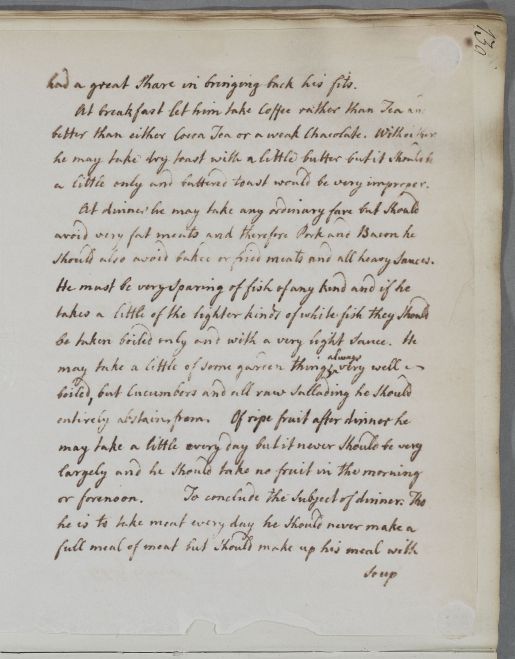 130
had a great Share in bringing back his fits.
At breakfast let him take Coffee rather than Tea an
better than either Cocoa Tea or a weak Chacolate. With either
he may take dry toast with a little butter but it should be
a little only and buttered toast would be very improper.
At dinner he may take any ordinary fare but should
avoid very fat meats and therefore Pork and Bacon he
should also avoid baked or fried meats and all heavy sauces.
He must be very sparing of fish of any kind and if he
takes a little of the lighter kinds of white fish they should
be taken boiled only and with a very light sauce. He
may take a little of some garden things always very well
boiled, but Cucumbers and all raw Sallading he should
entirely abstain from. Of ripe fruit after dinner he
may take a little every day but it never should be very
largely and he should take no fruit in the morning
or forenoon. To conclude the Subject of dinner. Tho
he is to take meat every day he should never make a
full meal of meat but should make up his meal with
soup